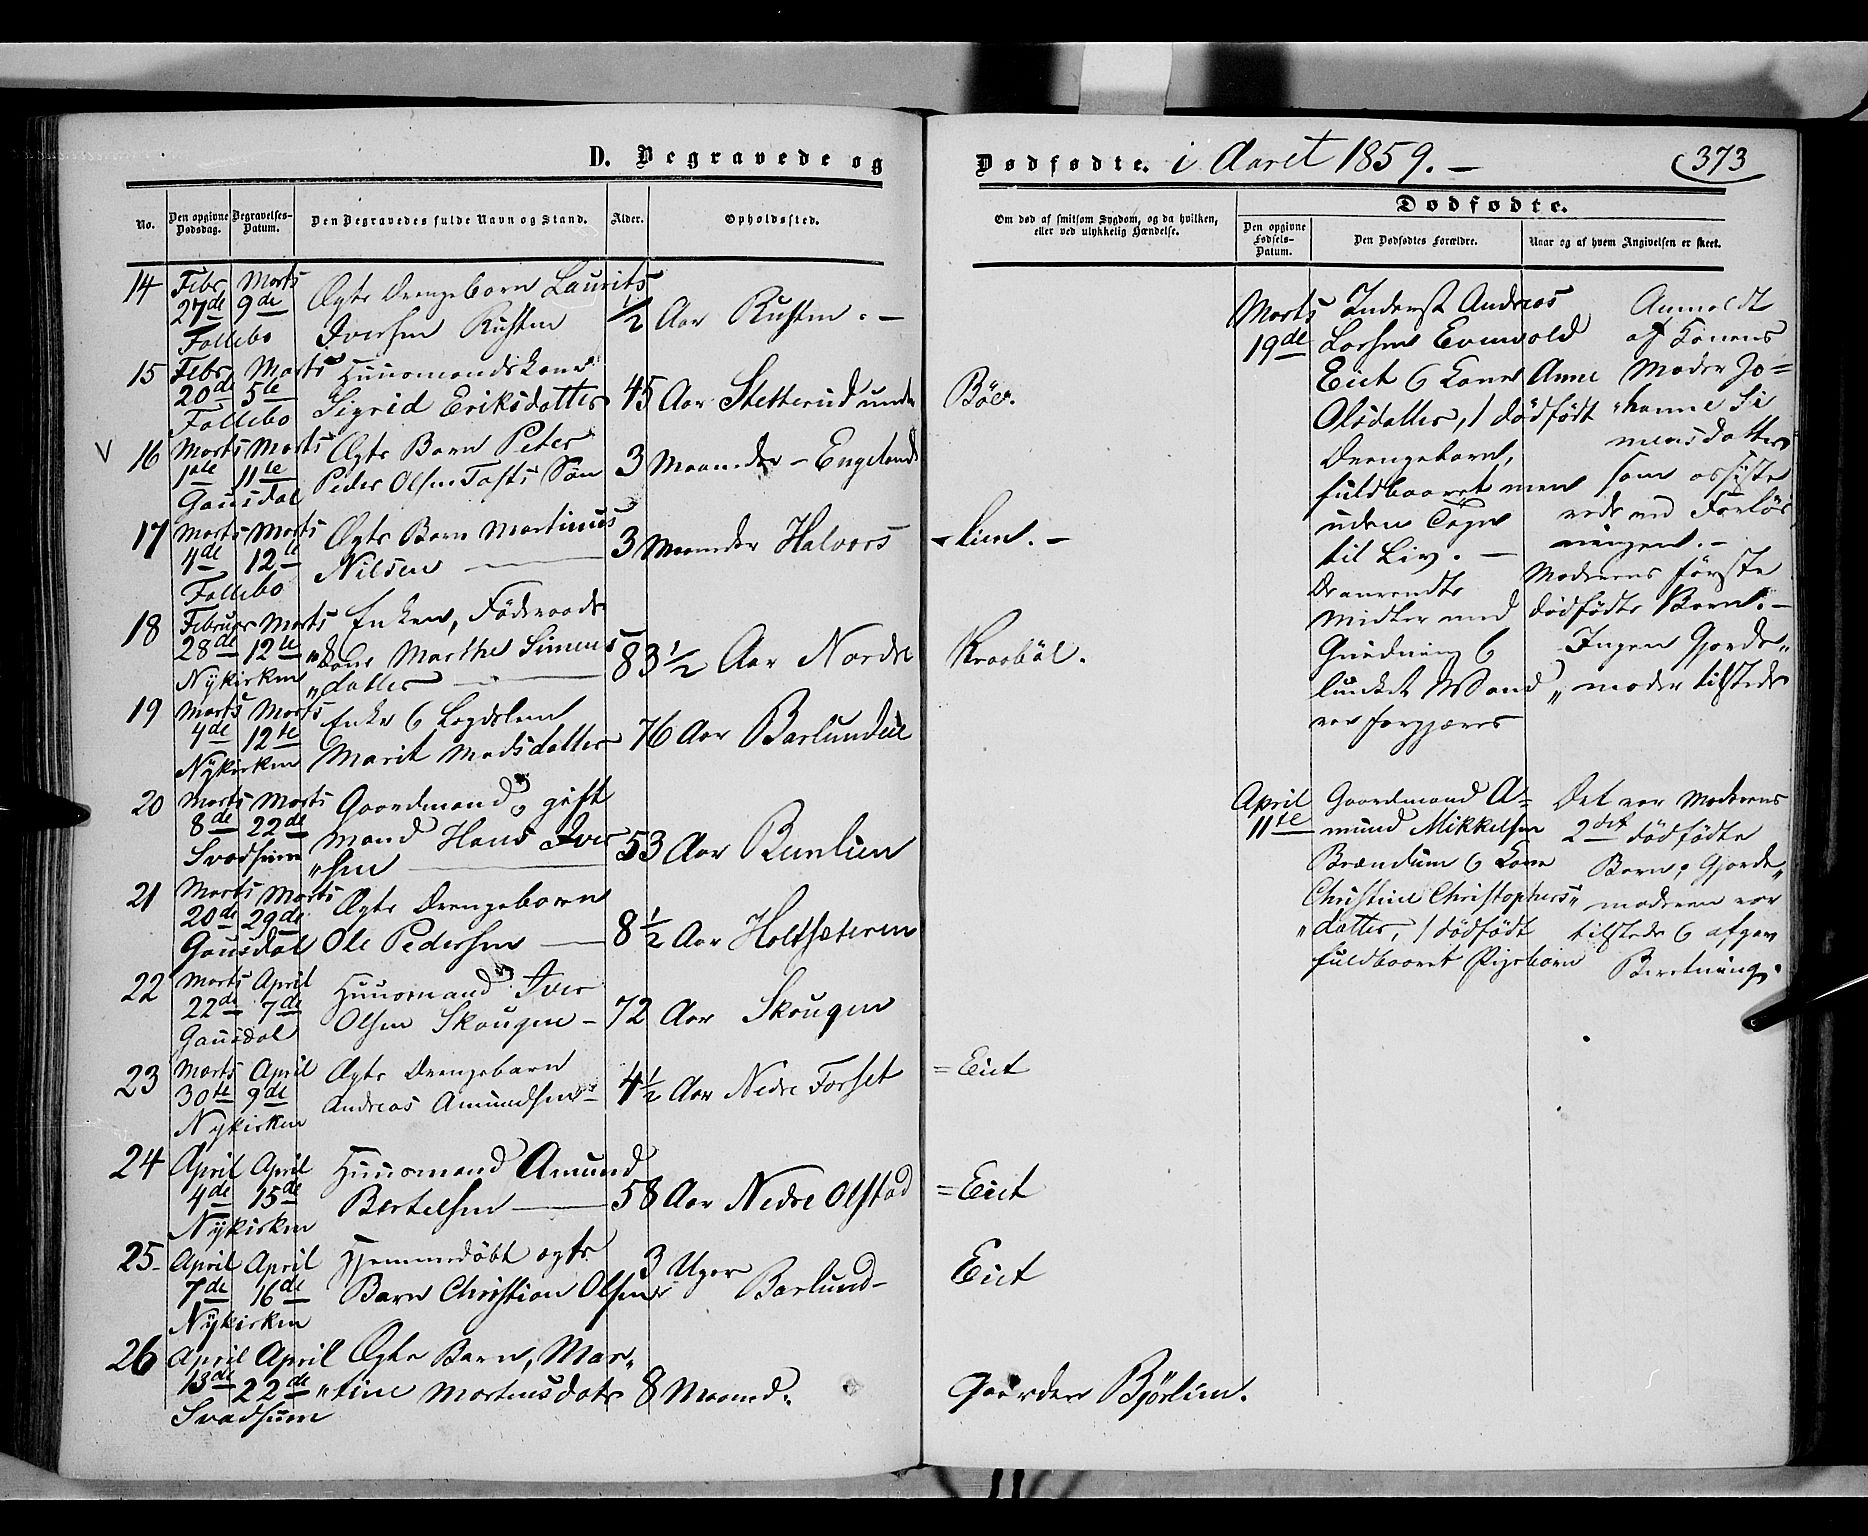 D. Begravede og
No.
Den opgivne Dødsdag.
Begravelses-Datum.
Den Begravedes fulde Navn og Stand.
Alder.
Opholdssted.
14 Febr Marts Ægte Drengebarn Laurits
27de 9de Iversen Rusten 1/2 Aar Rusten. –
Follebo
15 Febr Marts Huusmandskone
20de 5te Sigrid Eriksdatter 45 Aar Stetterud under Böe.
Follebo
V 16 Marts Marts Ægte Barn Peter
1ste 11te Peder Olsen Tofts Sön 3 Maaneder – Engeland
Gausdal
17 Marts Marts Ægte Barn Martinus
4de 12te Nilsen — 3 Maaneder Halvors - lien. –
Follebo
18 Februar Marts Enken, Föderaads
28de 12te "kone Marthe Simens 83 1/2 Aar Nordre Kraaböl.
Nykirken "datter —
19 Marts Marts Enke & Lægdslem
4de 12te Marit Madsdatter 76 Aar Barlundeie
Nykirken
20 Marts Marts Gaardmand, gift
8de 22de mand Hans Iver 53 Aar Runlien
Svadsum "sen —
21 Marts Marts Ægte Drengebarn
20de 29de Ole Pedersen — 8 1/2 Aar Holtsæteren
Gausdal
22 Marts April Huusmand Iver
22de 7de Olsen Skougen – 72 Aar Skougen
Gausdal
23 Marts April Ægte Drengebarn
30te 9de Andreas Amundsen – 4 1/2 Aar Nedre Forset = Eiet
Nykirken
24 April April Huusmand Amund
4de 15de Bertelsen — 58 Aar Nedre Olstad = Eiet
Nykirken
25 – April April Hjemmedöbt ægte
7de 16de Barn Christian Olsen 3 Uger Barlund – Eiet
Nykirken
26 April April Ægte Barn, Mar"
13de 22de "tine Mortensdatr 8 Maaned. Gaarden Bjørlien.
Svadsum
Dødfødte. i Aaret 1859. – 373
Om død af smitsom Sygdom, og da hvilken,
eller ved ulykkelig Hændelse.
Dødfødte.
Den opgivne Fødsels-Datum.
Den Dødfødtes Forældre.
Naar og af hvem Angivelsen er skeet.
Marts
19de
Inderst Andreas
Larsen Evenvold
Eiet & Kone Anne
Olsdatter, 1 dödfödt
Drengebarn,
fuldbaaret men
uden Tegn
til Liv. –
De anvendte
Midler med
Gnedning &
lunket Vand
var forgjæves
Anmeldt
af Konens
Moder Jo=
"hanne Si
mensdatter
som assiste
rede ved Forlös
ningen. –
Moderens förste
dödfödte Barn. –
Ingen Gjorde"
" moder tilstede
April
11te
Gaardmand A=
mund Mikkelsen
Brændum & Kone
Christine Christophers"
"datter, 1 dödfödt
fuldbaaret Pigebarn
Det var Moderens
2det dödfödte
Barn, Gjorde"
moderen var
tilstede & afgav
Beretning.